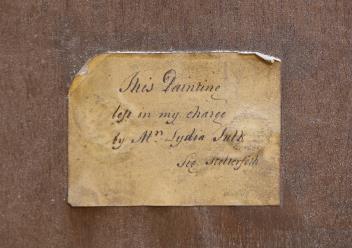 This Painting
left in my charge
by Mrs Lydia Tuth
Geo. Stetterfoth